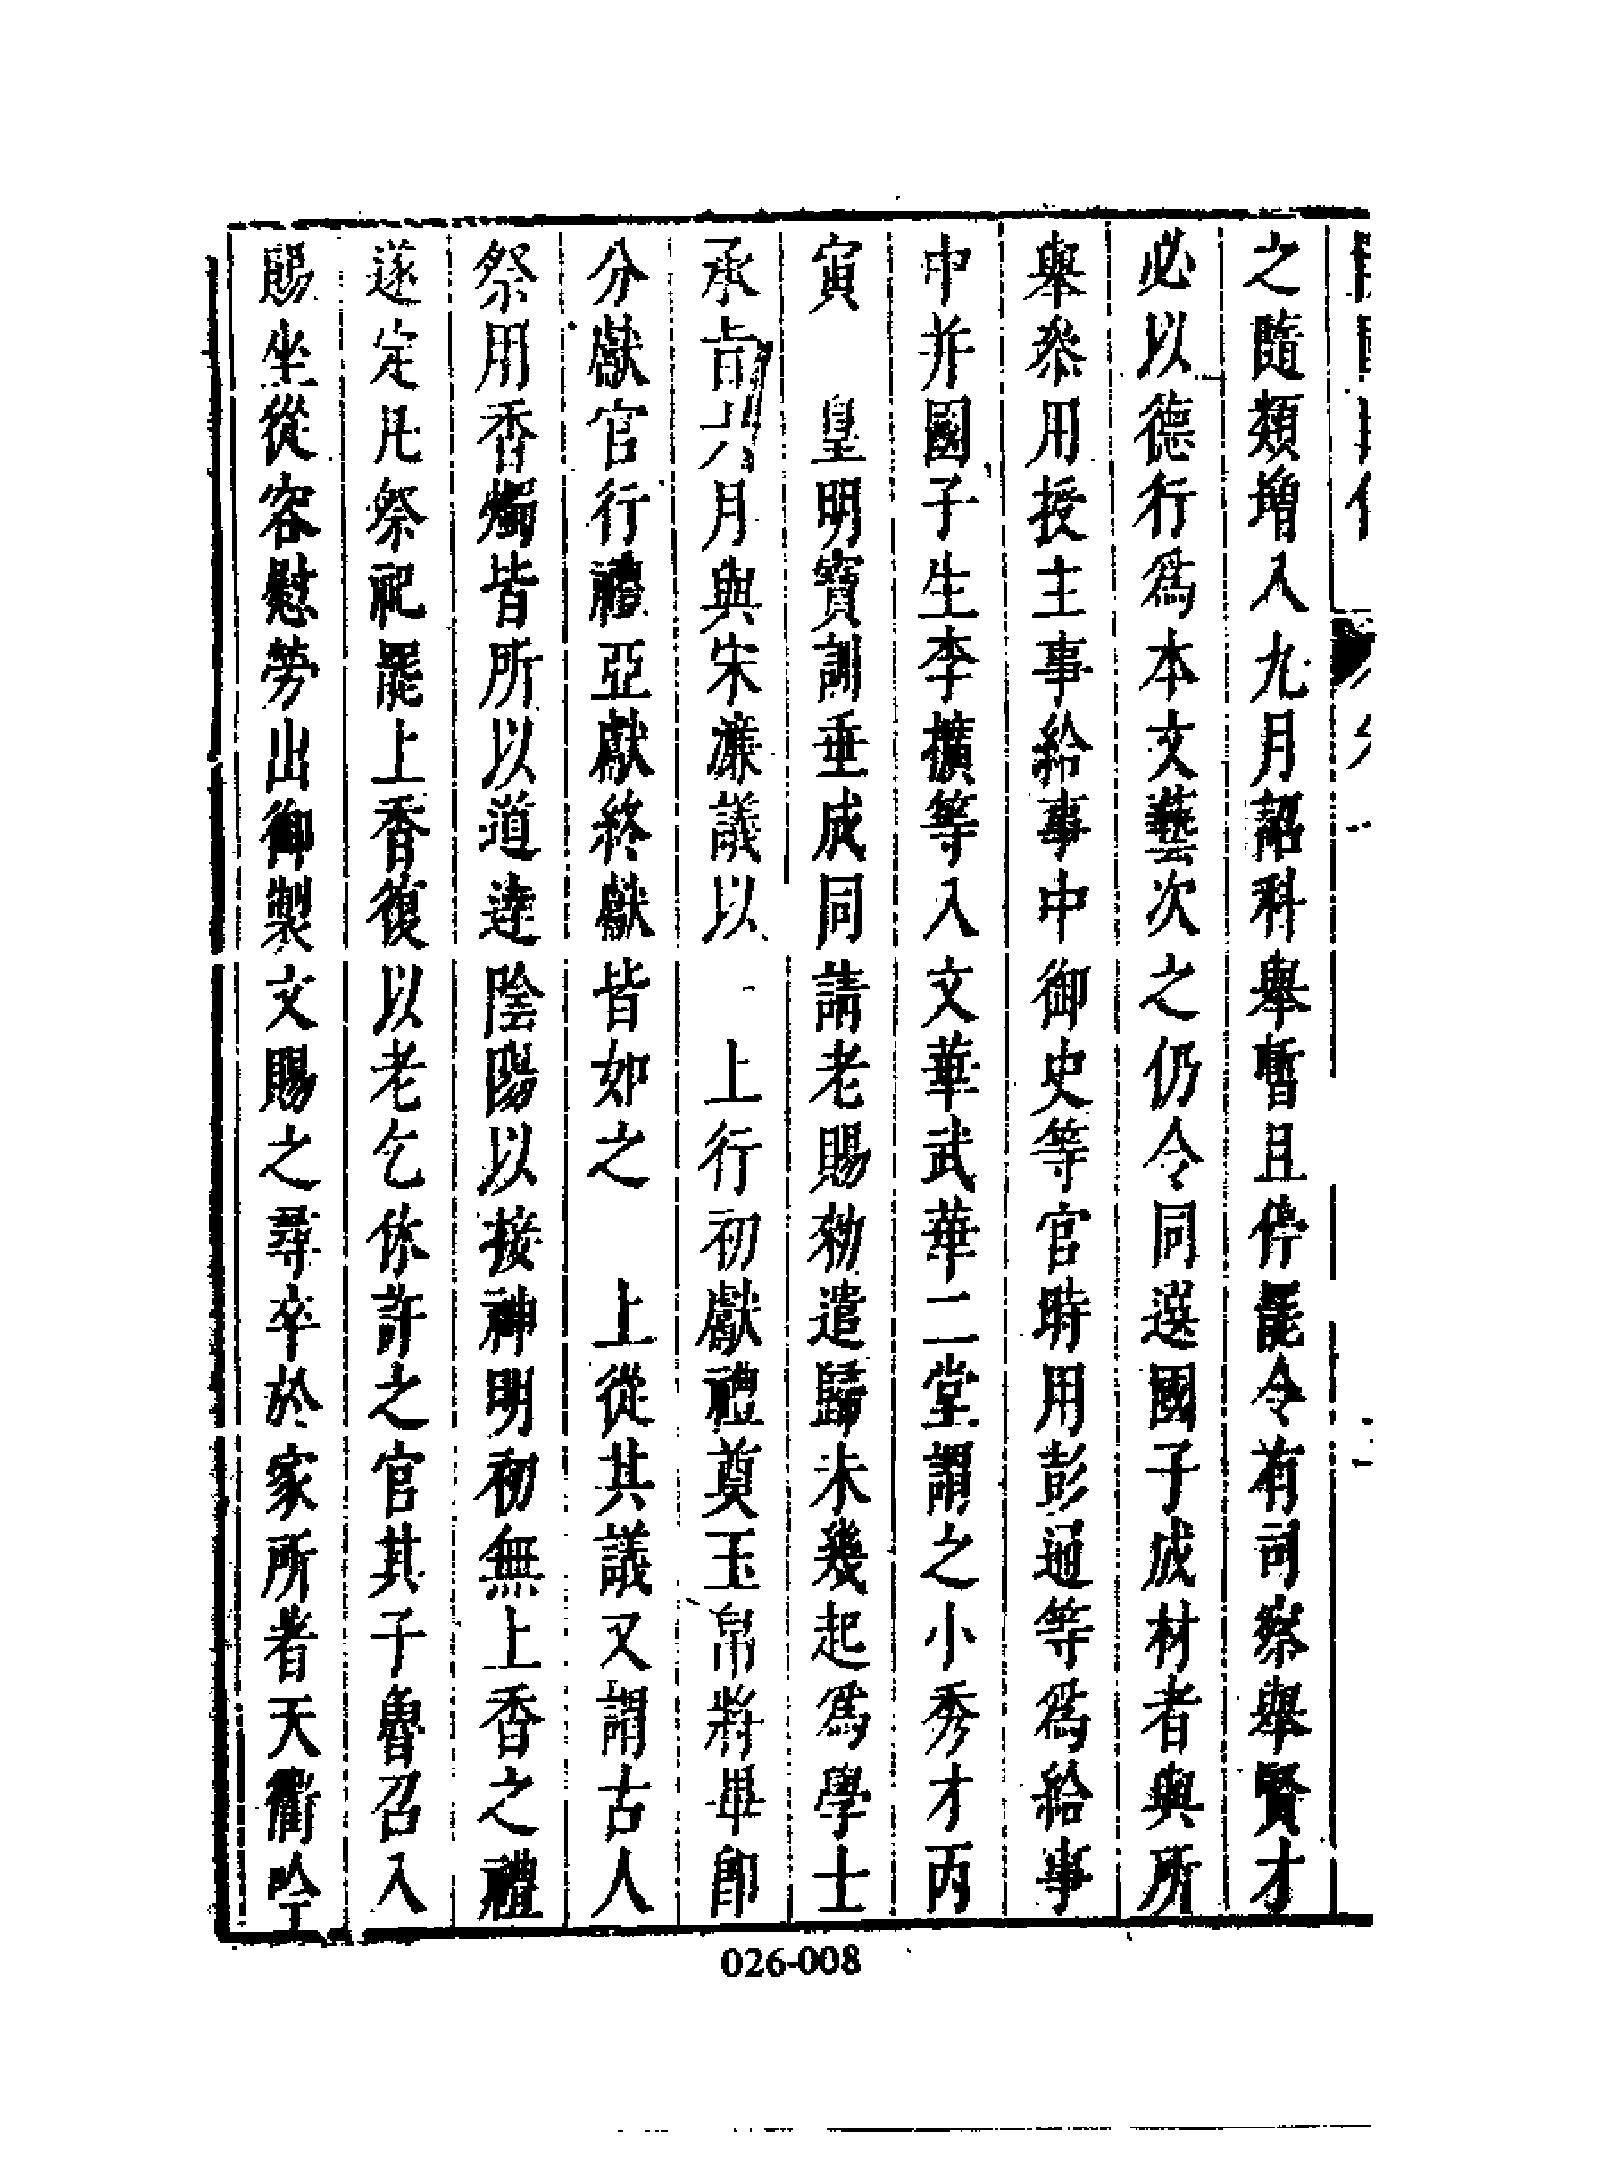 之隨類增入九月詔科舉暫且停罷令有司察舉賢才
必以德行爲本文藝次之仍令同選國子成材者與所
舉叅用授主事給事中御史等官時用彭通等爲給事
中并國子生李擴等入文華武華二堂謂之小秀才丙
寅　皇明寶訓垂成同請老賜勑遣歸未幾起爲學士
承旨六月與宋濂議以　上行初獻禮奠玉帛將畢即
分獻官行禮亞獻終獻皆如之　上從其議又謂古人
祭用香燭皆所以道達陰陽以接神明初無上香之禮
遂定凡祭祀罷上香復以老乞休許之官其子魯召入
賜坐從容慰勞出御製文賜之尋卒於家所者天衢吟
026-008